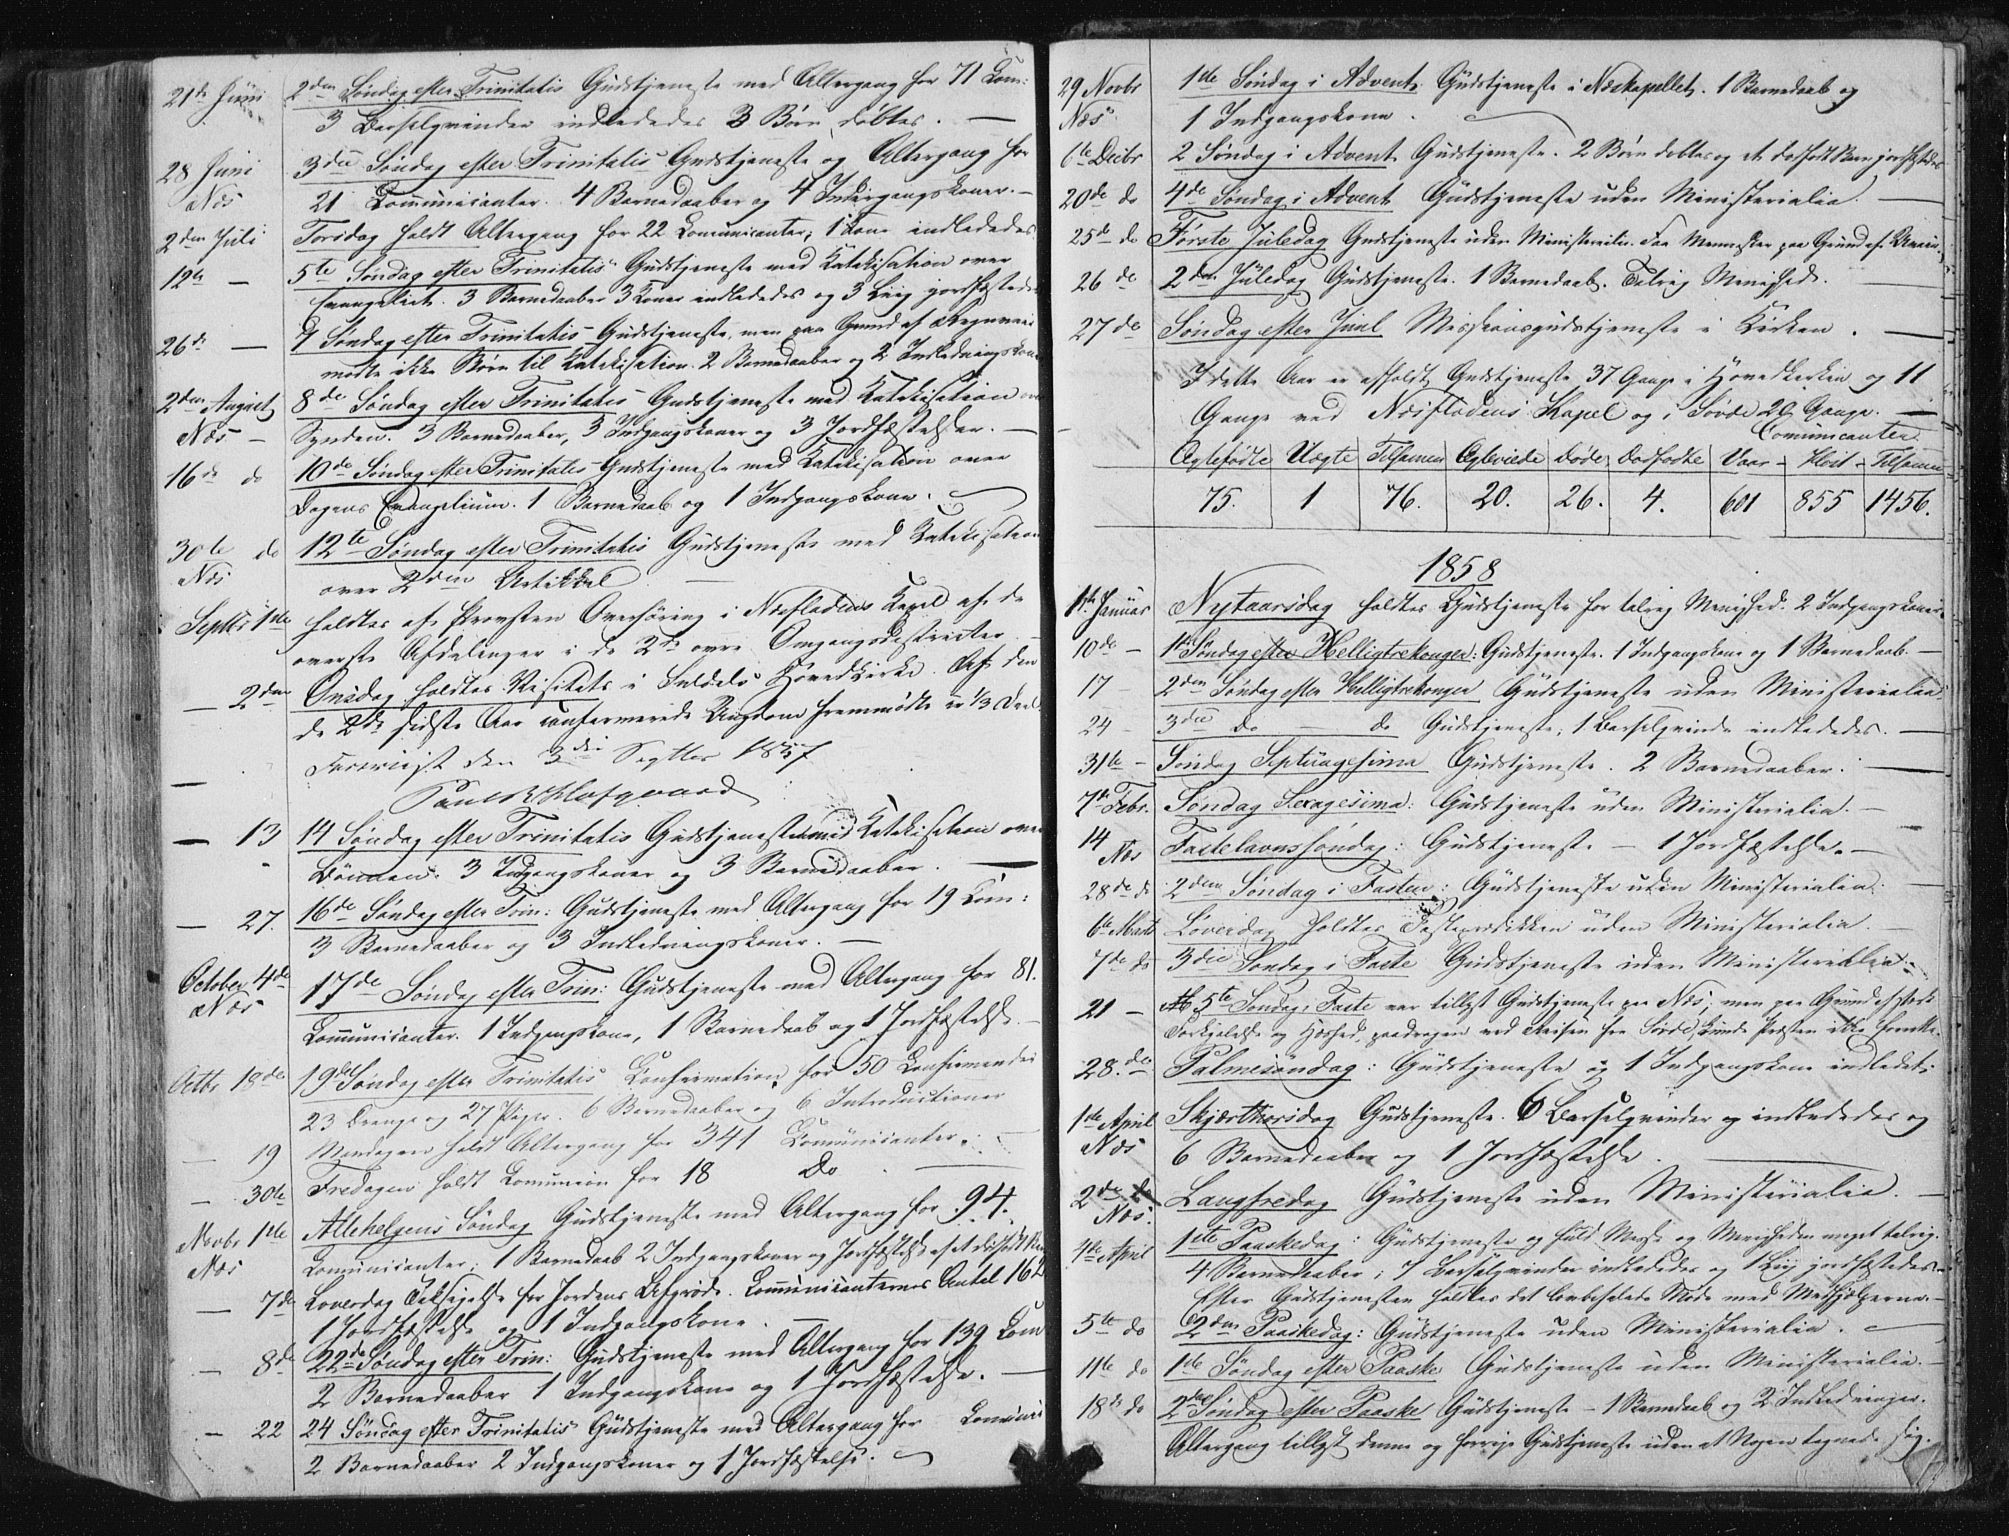 21de Juni 2den Søndag efter Trinitatis Gudstjeneste med Altergang for 71 Com:
3 Barselqvinder indlededes 3 Børn døbtes. —
28 Juni 3die Søndag efter Trinitatis Gudstjeneste og Altergang for
Næs 21 Communicanter. 4 Barnedaaber og 4 Indgangskoner. —
2den Juli Torsdag holdt Altergang for 22 Comunicanter; 1 Kone indlededes
12te — 5te Søndag efter Trinitatis Gudstjeneste med Katekisation over
Evangeliet. 3 Barnedaaber 3 Koner indlededes og 3 Liig jordfæstedes
26de — 7 Søndag efter Trinitatis Gudstjeneste, men paa Grund af Regnveir
mødte ikke Børn til Katekisation. 2 Barnedaaber og 2 Indledningskoner
2den August 8de Søndag efter Trinitatis Gudstjeneste med Katekisation over
Næs — Synden. 3 Barnedaaber, 3 Indgangskoner og 3 Jordfæstelser. —
16de do 10de Søndag efter Trinitatis Gudstjeneste med Katekisation over
Dagens Evangelium. 1 Barnedaab og 1 Indgangskone.
30te do 12te Søndag efter Trinitatis Gudstjeneste med Katekisation
Næs over 2den Artikkel
Septbr 1ste holdtes af Provsten Overhøring i Næsfladens Kapel af de
øverste Afdelinger i de 2de øvre Omgangsdistricter. —
— 2den Onsdag holdtes Visitats i Suldals Hovedkirke. Af den
de 2de sidste Aar confirmerede Ungdom fremmødte ca 1/3 Deel.
den 3die Septbr 1857
— 13 14 Søndag efter Trinitatis Gudstjeneste med Katekisation over
Bønnen. 3 Indgangskoner og 3 Barnedaaber. —
— 27. 16de Søndag efter Trin: Gudstjeneste med Altergang for 19 Com:
3 Barnedaaber og 3 Indledningskoner. —
October 4de 17de Søndag efter Trin: Gudstjeneste med Altergang for 81.
Næs Communicanter. 1 Indgangskone, 1 Barnedaab og 1 Jordfæstelse. —
Octbr 18de 19de Søndag efter Trinitatis Confirmation for 50 Confirmander
23 Drenge og 27 Piger. 6 Barnedaaber og 6 Introductioner
— 19 Mandagen holdt Altergang for 341 Comunicanter. —
— 30te Fredagen holdt Comunion for 18 Do
Novbr 1ste Allehelgens Søndag Gudstjeneste med Altergang for 94.
Næs Comunicanter; 1 Barnedaab 2 Indgangskoner og Jordfæstelse af et dødfødt Barn
— 7de Løverdag Taksigelse for Jordens Afgrøde. Communicanternes Antal 162
1 Jordfæstelse og 1 Indgangskone. —
— 8de 22de Søndag efter Trin: Gudstjeneste med Altergang for 139 Com
2 Barnedaaber 1 Indgangskone og 1 Jordfæstelse. —
— 22 24 Søndag efter Trinitatis Gudstjeneste med Altergang for Comuni
2 Barnedaaber 2 Indgangskoner og 1 Jordfæstelse.
29 Novbr 1ste Søndag i Advent Gudstjeneste i Næskapellet. 1 Barnedaab og
Næs 1 Indgangskone.
6te Decbr 2 Søndag i Advent Gudstjeneste. 2 Børn døbtes og et dødfødt Barn jordfæstedes
20de do 4de Søndag i Advent Gudstjeneste uden Ministerialia. —
25de do Første Juledag Gudstjeneste uden Ministerialia. Faa Mennesker paa Grund af
26 de 2den Juledag Gudstjeneste. 1 Barnedaab. Talrig Menighed. —
27 de Søndag efter Juul Missionsgudstjeneste i Kirken. —
I dette Aar er afholdt Gudstjeneste 37 Gange i Hovedkirken og 11
Gange ved Næsfladens Kapel og i Sovde 20 Gange. —
Comunicanter
Ægtefødte Uægte Tilsamen Ægteviede Døde Dødfødte Vaar- Høst- Tilsamen
75. 1 76. 20. 26. 4. 601 855 1456.
1858
1ste Januar Nytaarsdag holdtes Gudstjeneste for talrig Menighed. 2 Indgangskoner.
10de — 1ste Søndag efter Helligtrekonger: Gudstjeneste. 1 Indgangskone og 1 Barnedaab. —
17 — 2den Søndag efter Helligtrekonger Gudstjeneste uden Ministerialia
24 — 3die do — do Gudstjeneste, 1 Barselqvinde indlededes. —
31te — Søndag Septuagesima Gudstjeneste. 2 Barnedaaber. —
7de Febr. Søndag Sexagesima: Gudstjeneste uden Ministerialia. —
14 Næs Fastelavnssøndag: Gudstjeneste — 1 Jordfæstelse. —
28de do 2den Søndag i Fasten: Gudstjeneste uden Ministerialia. —
6te Marts Løverdag holdtes Fasteprædikken uden Ministerialia. —
7de do 3die Søndag i Faste Gudstjeneste uden Ministerialia. —
21 — 5te Søndag i Faste var tillyst Gudstjeneste paa Næs, men paa Grund af stærk
Forkjølelse og Hæshed, paadragen ved Reisen fra Sovde, kunde Præsten ikke forrette.
28.de Palmesøndag: Gudstjeneste og 1 Indgangskone indledet.
1ste April Skjærthorsdag Gudstjeneste. 6 Barselqvinder og indlededes og
Næs 6 Barnedaaber og 1 Jordfæstelse. —
2de do Langfredag Gudstjeneste uden Ministerialia. —
Næs.
4de April 1ste Paaskedag: Gudstjeneste og fuld Messe og Menigheden meget talrig.
4 Barnedaaber; 7 Barselqvinder indlededes og 1 Liig jordfæstedes. —
Efter Gudstjenesten holdtes det anbefalede Møde med Medhjælperne. —
5te do 2den Paaskedag: Gudstjeneste uden Ministerialia. —
11te do 1ste Søndag efter Paaske Gudstjeneste uden Ministerialia. —
18de do 2den Søndag efter Paaske Gudstjeneste — 1 Barnedaab og 2 Indledninger.
Altergang tillyst denne og forrige Gudstjeneste uden at Nogen tegnede sig.